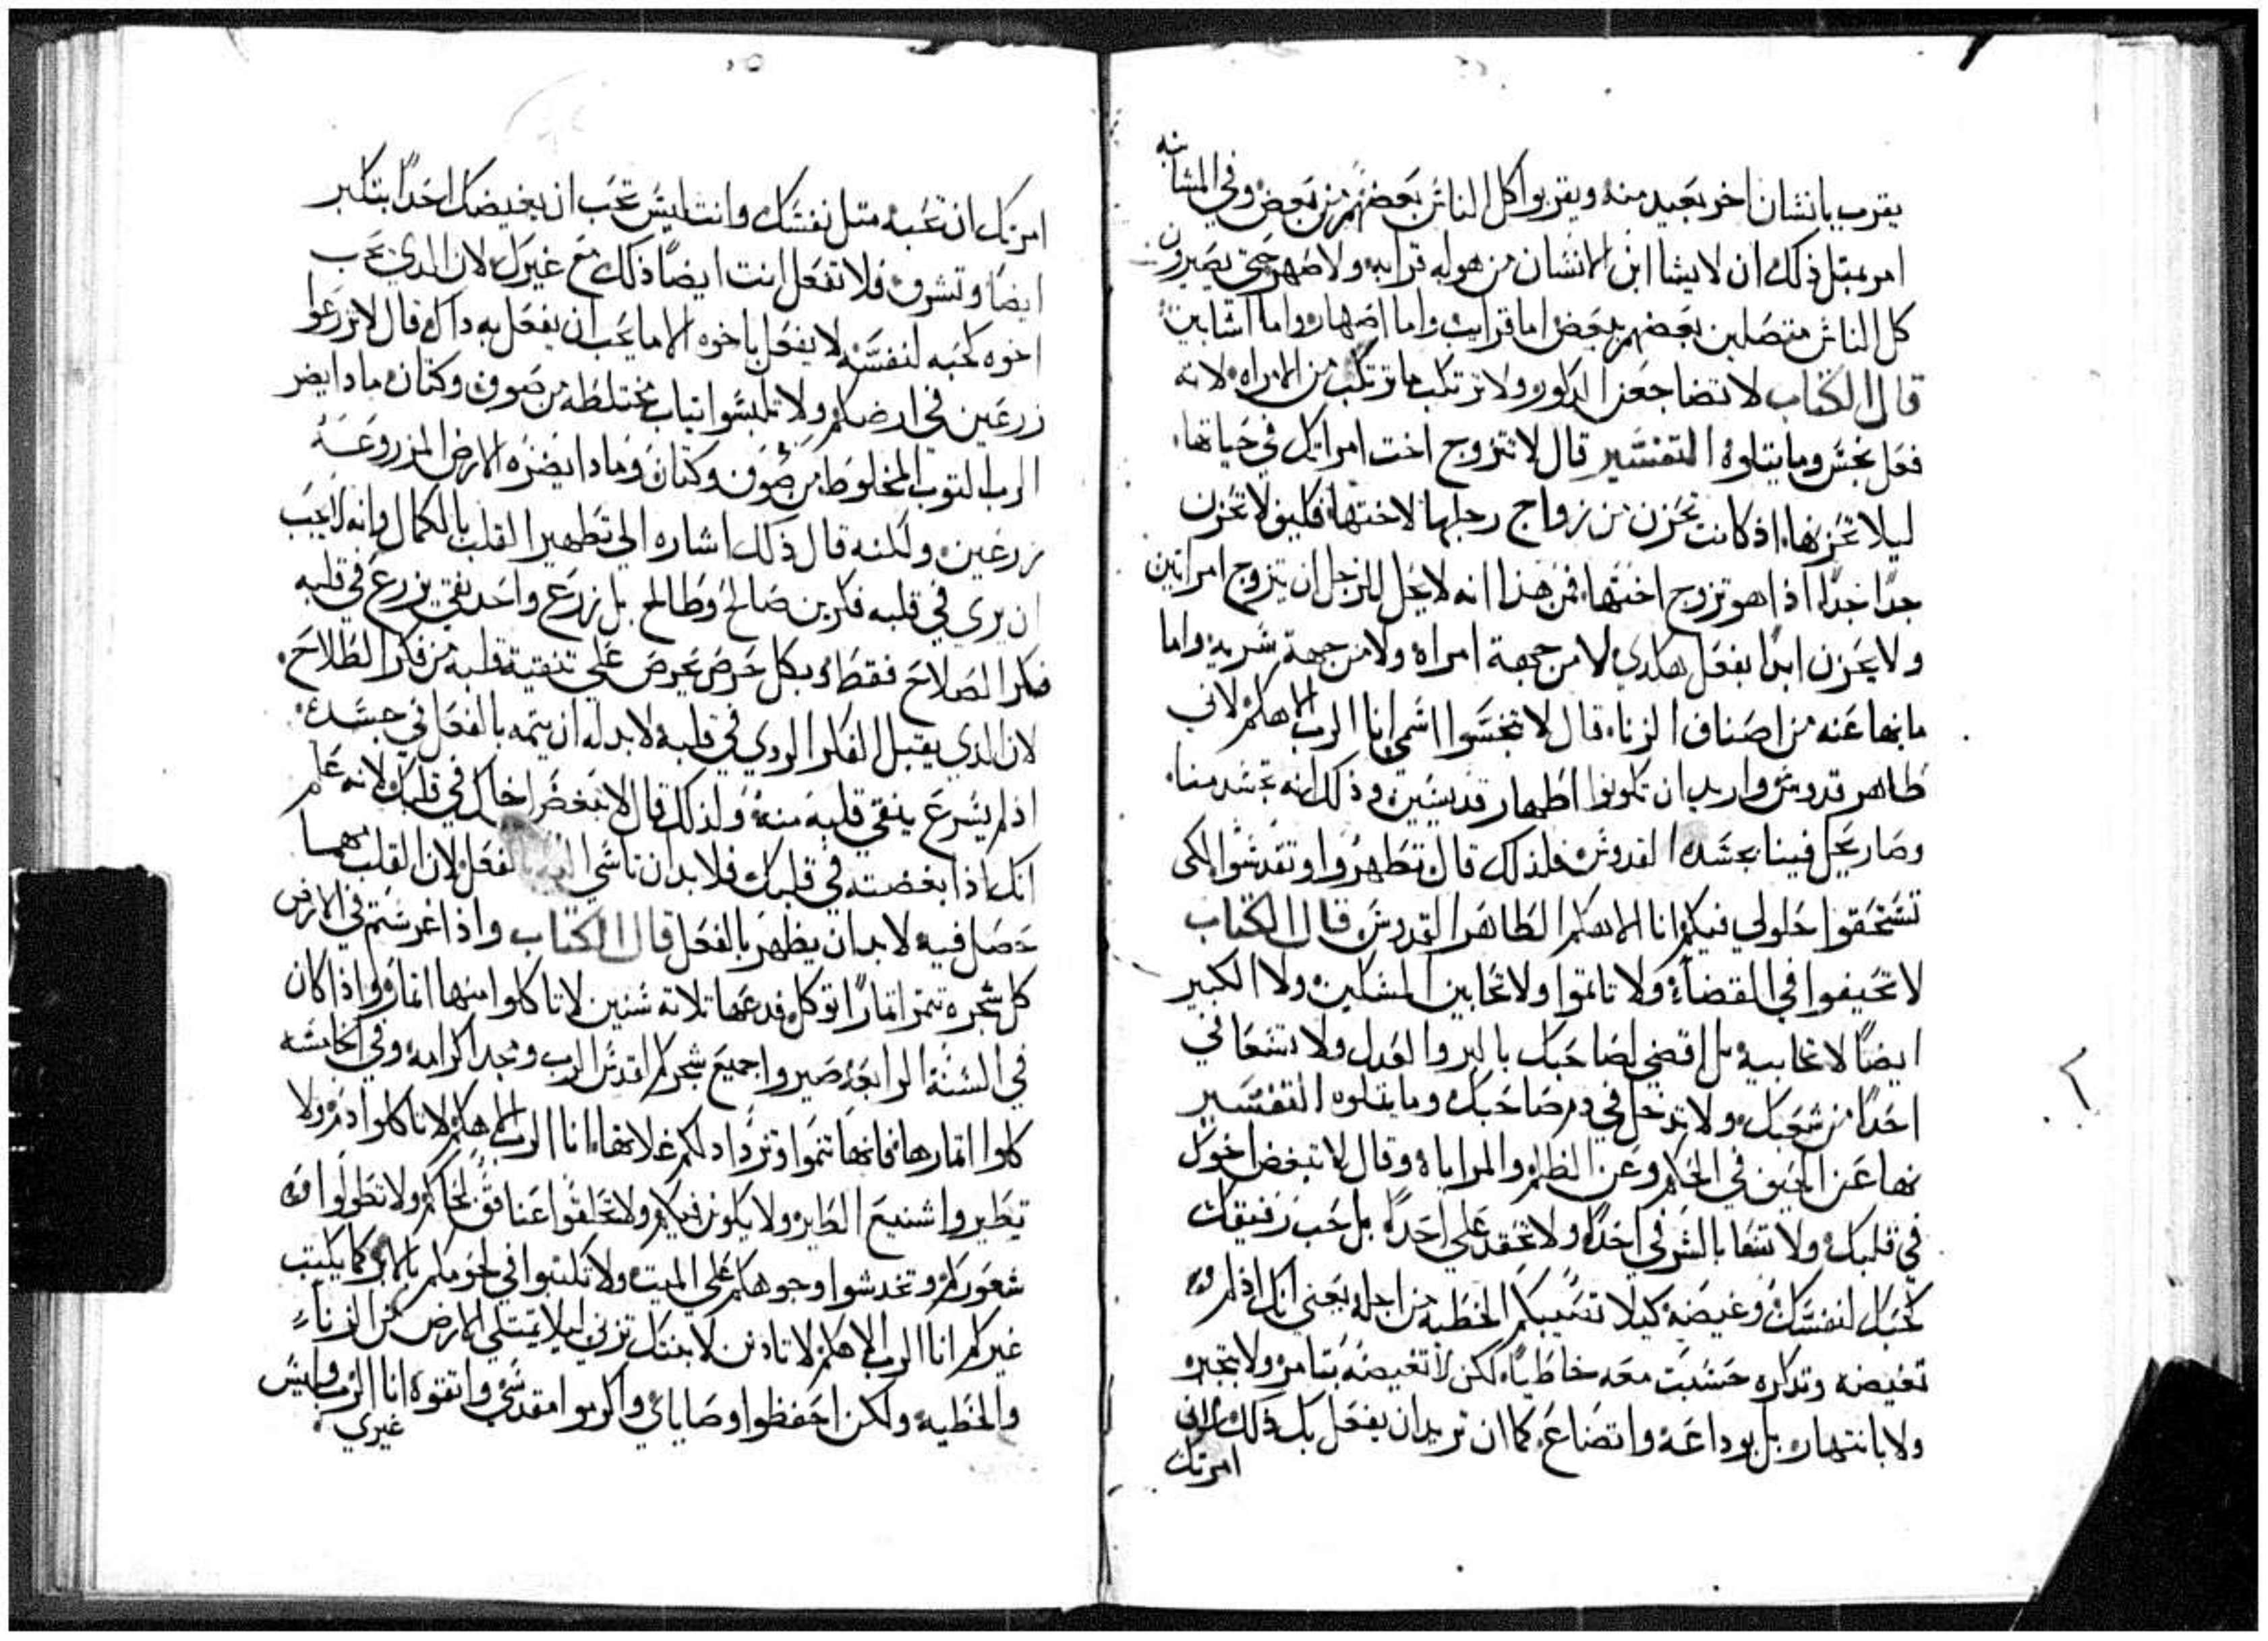 يقرب بانسان اخر بعيد منه ويقربوا كل الناس بعضهم من بعض وفي المشابه
امر بمتل ذلك ان لا يشا ابن الانسان من هو له قرابه ولا صهر حتي يصيرون
كل الناس متصلين بعضهم ببعض اما قرايب واما اصهار واما انسابين
قال الكتاب لا تضاجعن الدكور ولا ترتكب ما ترتكب من الامراه لانه
فعل نجس وما يتلوه التفسير قال لا تتزوج اخت امراتك في حياتها
ليلا تحزنها اذ كانت تحزن من زواج رجلها لاختها فكيف لا تحزن
جدًا جدًا اذا هو تزوج اختها فمن هذا انه لا يحل للرجل ان يتزوج امراتين
ولا يحزن ابدًا بفعل هكدي لا من جهة امراه ولا من جهة سريه واما
ما نها عنه من اصناف الزناه قال لا تنجسوا اسمي انا الرب الاهكم لاني
طاهر قدوس واريد ان تكونوا اطهار قديسين وذلك انه تجسد منا
وصار يحل فينا بجسده القدوس فلذلك قال تطهروا وتقدسوا لكي
تستحقوا حلولي فيكم انا الاهكم الطاهر القدوس قال الكتاب
لا تحيفوا في القضاء ولا تاتموا ولا تحابين المسكين ولا الكبير
ايضًا لا تحابيه بل اقضي لصاحبك بالبر والعدل ولا تسعا في
احدًا من شعبك ولا تدخل في دم صاحبك وما يتلوه التفسير
نها عن الحيف في الحكم وعن الظلم والمراياه وقال لا تبغض اخوك
في قلبك ولا تسعا بالشر في احدًا ولا تحقد علي احدًا بل حب رفيقك
كحبك لنفسك وغيضه كيلا تصيبكم الخطيه من اجله يعني انك اذ لم
تغيضه وتداره حسبت معه خاطيًا لكن لا تغيضه بتامر ولا بتجبره
ولا بانتهاره بل بوداعه واتضاع كما ان تريد ان يفعل بك ذلك لاني
امرتك
امرتك ان تحبه متل نفسك وانت ليس تحب ان يغيضك احدًا بتكبر
ايضًا وتشرف فلا تفعل انت ايضًا ذلك مع غيرك لان الدي يحب
اخوه كحبه لنفسه لا يفعل باخوه الا ما يحب ان يفعل به داك قال لا تزرعوا
زرعين في ارضكم ولا تلبسوا تياب مختلطه من صوف وكتان مادا يضر
الرب التوب المخلوط من صوف وكتان ومادا يضره الارض المزروعه
زرعين ولكنه قال ذلك اشاره الي تطهير القلب بالكمال وانه لا يجب
ان يري في قلبه فكرين صالح وطالح بل زرع واحد نقي يزرع في قلبه
فكر الصلاح فقط وبكل حرص يحرص علي تنقية قلبه من فكر الطلاح
لان الدي يقبل الفكر الردي في قلبه لا بد له ان يتمه بالفعل في جسده
اذ لم يسرع ينقي قلبه منه ولذلك قال لا تبغض اخاك في قلبك لانه عالم
انك اذا بغضته في قلبك فلا بد ان تاسي اليه بالفعل لان القلب مهما
حصل فيه لا بد ان يظهر بالفعل قال الكتاب واذا غرستم في الارض
كل شجره تتمر اتمارًا توكل فدعها تلاته سنين لا تاكلوا منها اتمار واذا كان
في السنة الرابعه صيروا جميع شجركم لقدس الرب ومجد اكرامه وفي الخامسه
كلوا اتمارها فانها تنموا وتزداد لكم غلاتها انا الرب الاهكم لا تاكلوا دم ولا
تطيروا شنيع الطايره ولا يكون فيكم ولا تحلقوا عنافق لحاكم ولا تطولوا
شعوركم وتخدشوا وجوهكم علي الميت ولا تكتبوا في لحومكم بالابر كما يكتب
غيركم انا الرب الاهكم لا تادنن لابنتك تزني ليلا تمتلي الارض من الزناء
والخطيه ولكن احفظوا وصاياي واكرموا مقدسي واتقوه انا الرب وليس
غيري